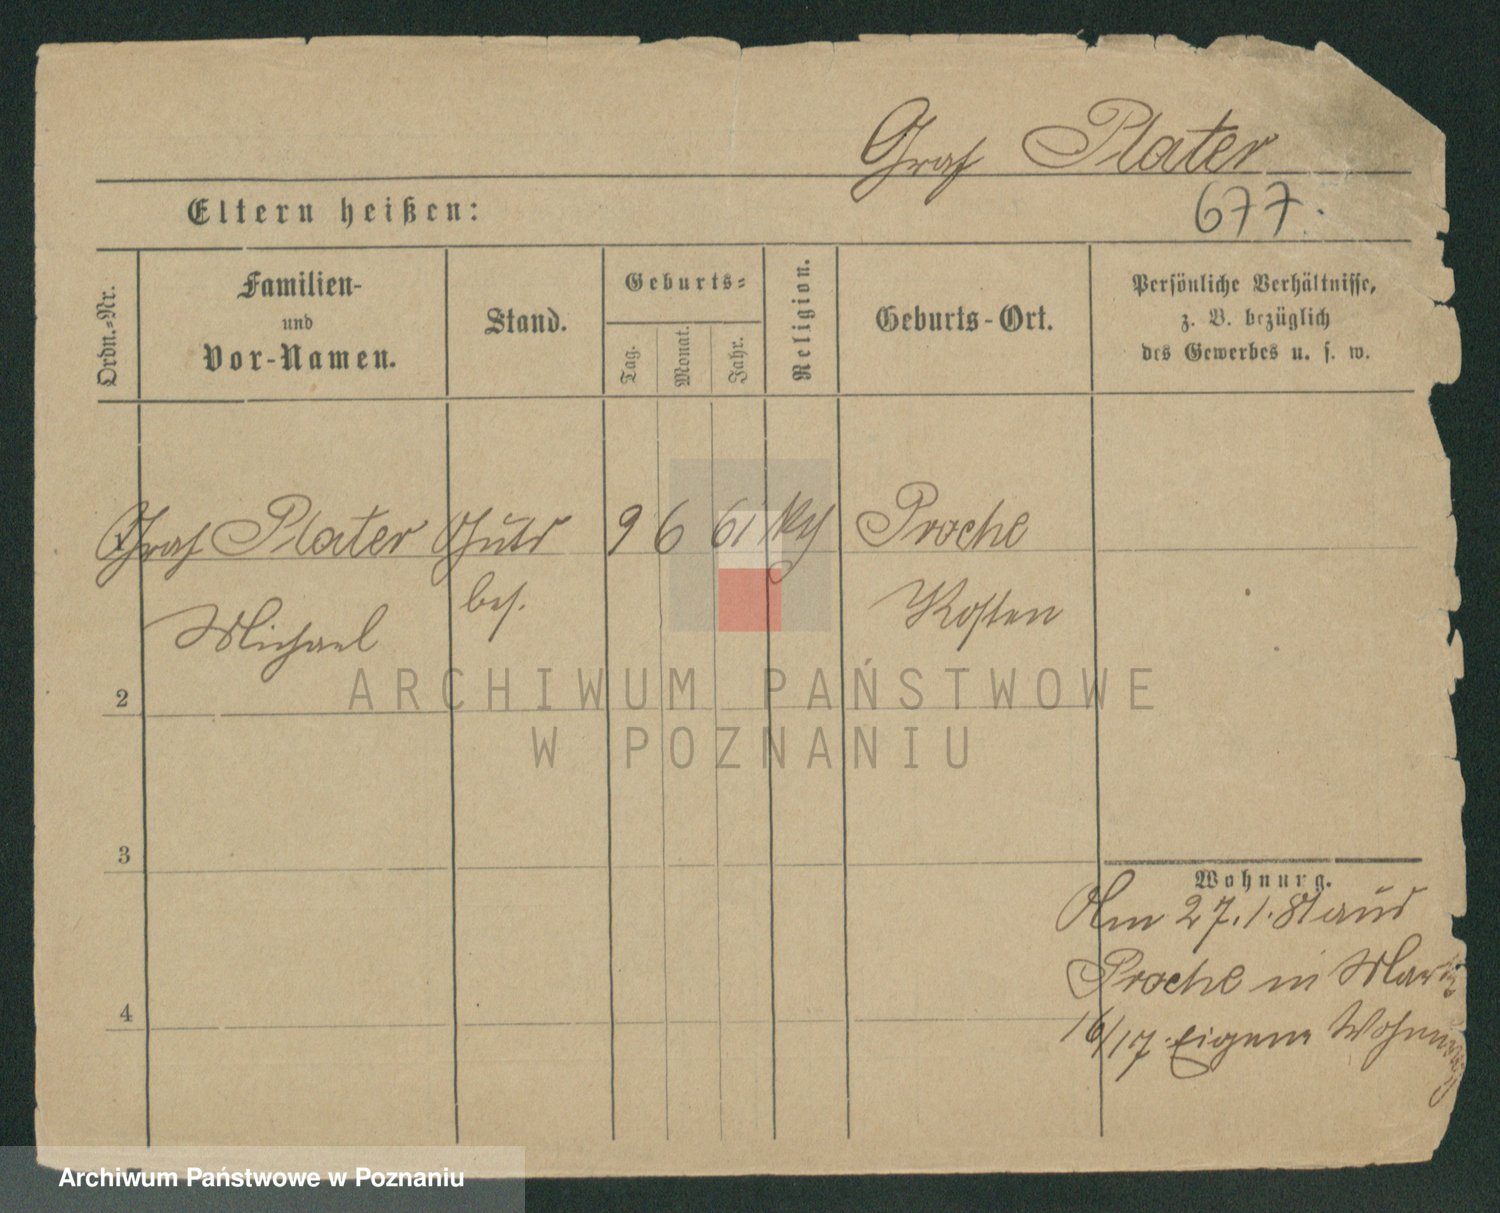 Graf Plater
677.
Eltern heißen:
Ordn.-Nr.
Familien-
und
Vor-Namen.
Stand.
Geburts-
Tag.
Monat.
Jahr.
Religion.
Geburts-Ort.
Persönliche Verhältnisse,
z. B. bezüglich
des Gewerbes u. s. w.
Graf Plater Guts 9 6 61 Proche
Michael bes. Kosten
ARCHIWUM PAŃSTWOWE
W POZNANIU
2
3
4
Wohnung.
Am 27.1.81 aus
Proche in Martin
16/17 Eigene Wohnung
Archiwum Państwowe w Poznaniu